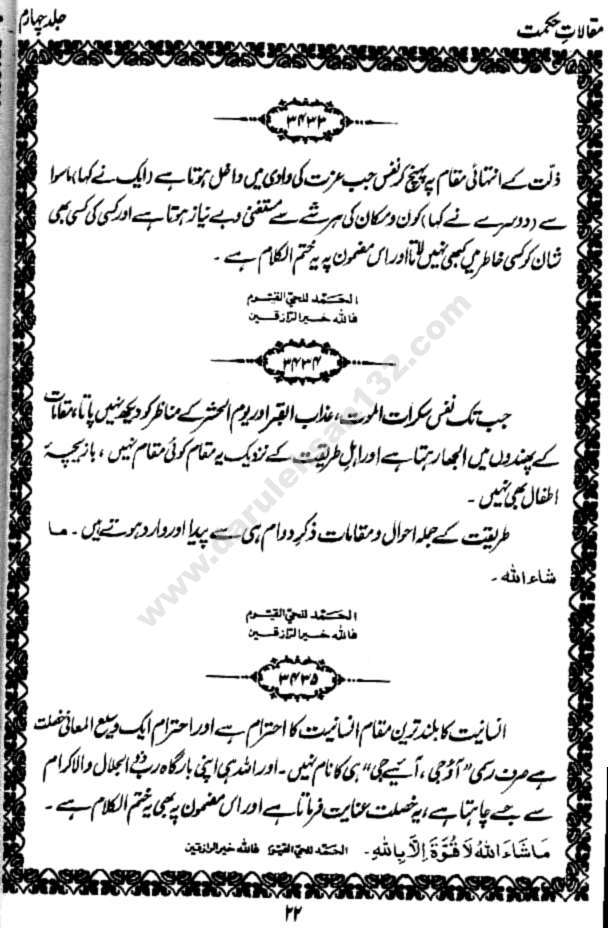 مقالاتِ حکمت
جلد چہارم
۳۴۳۳
ذلّت کے انتہائی مقام پر پہنچ کر نفس جب عزت کی وادی میں داخل ہوتا ہے (ایک نے کہا) ماسوا
سے (دوسرے نے کہا) کون و مکان کی ہر شے سے مستغنی و بے نیاز ہوتا ہے اور کسی کی کسی بھی
شان کو کسی خاطر میں کبھی نہیں لاتا اور اس مضمون پہ یہ ختم الکلام ہے ۔
الحَمۡد للحیّ القیّوم
فاللہ خیر الرّازقین
۳۴۳۴
جب تک نفس سکرات الموت، عذاب القبر اور یوم الحشر کے مناظر کو دیکھ نہیں پاتا، مقامات
کے پھندوں میں الجھا رہتا ہے اور اہلِ طریقت کے نزدیک یہ مقام کوئی مقام نہیں ، بازیچۂ
اطفال بھی نہیں ۔
طریقت کے جملہ احوال و مقامات ذکرِ دوام ہی سے پیدا اور وارد ہوتے ہیں ۔ ما
شاء اللہ ۔
الحَمۡد للحیّ القیّوم
فاللہ خیر الرّازقین
۳۴۳۵
انسانیت کا بلند ترین مقام انسانیت کا احترام ہے اور احترام ایک وسیع المعانی خصلت
ہے صرف رسمی "آؤ جی ، آئیے جی" ہی کا نام نہیں ۔ اور اللہ ہی اپنی بارگاہ ربّ ذو الجلال والاکرام
سے جسے چاہتا ہے ، یہ خصلت عنایت فرماتا ہے اور اس مضمون پہ بھی یہ ختم الکلام ہے ۔
مَا شَاءَ اللهُ لَا قُوَّةَ اِلَّا بِاللهِ ۔ الحَمۡد للحیّ القیّوم فاللہ خیر الرازقین
۲۲
www.darulehsan132.com